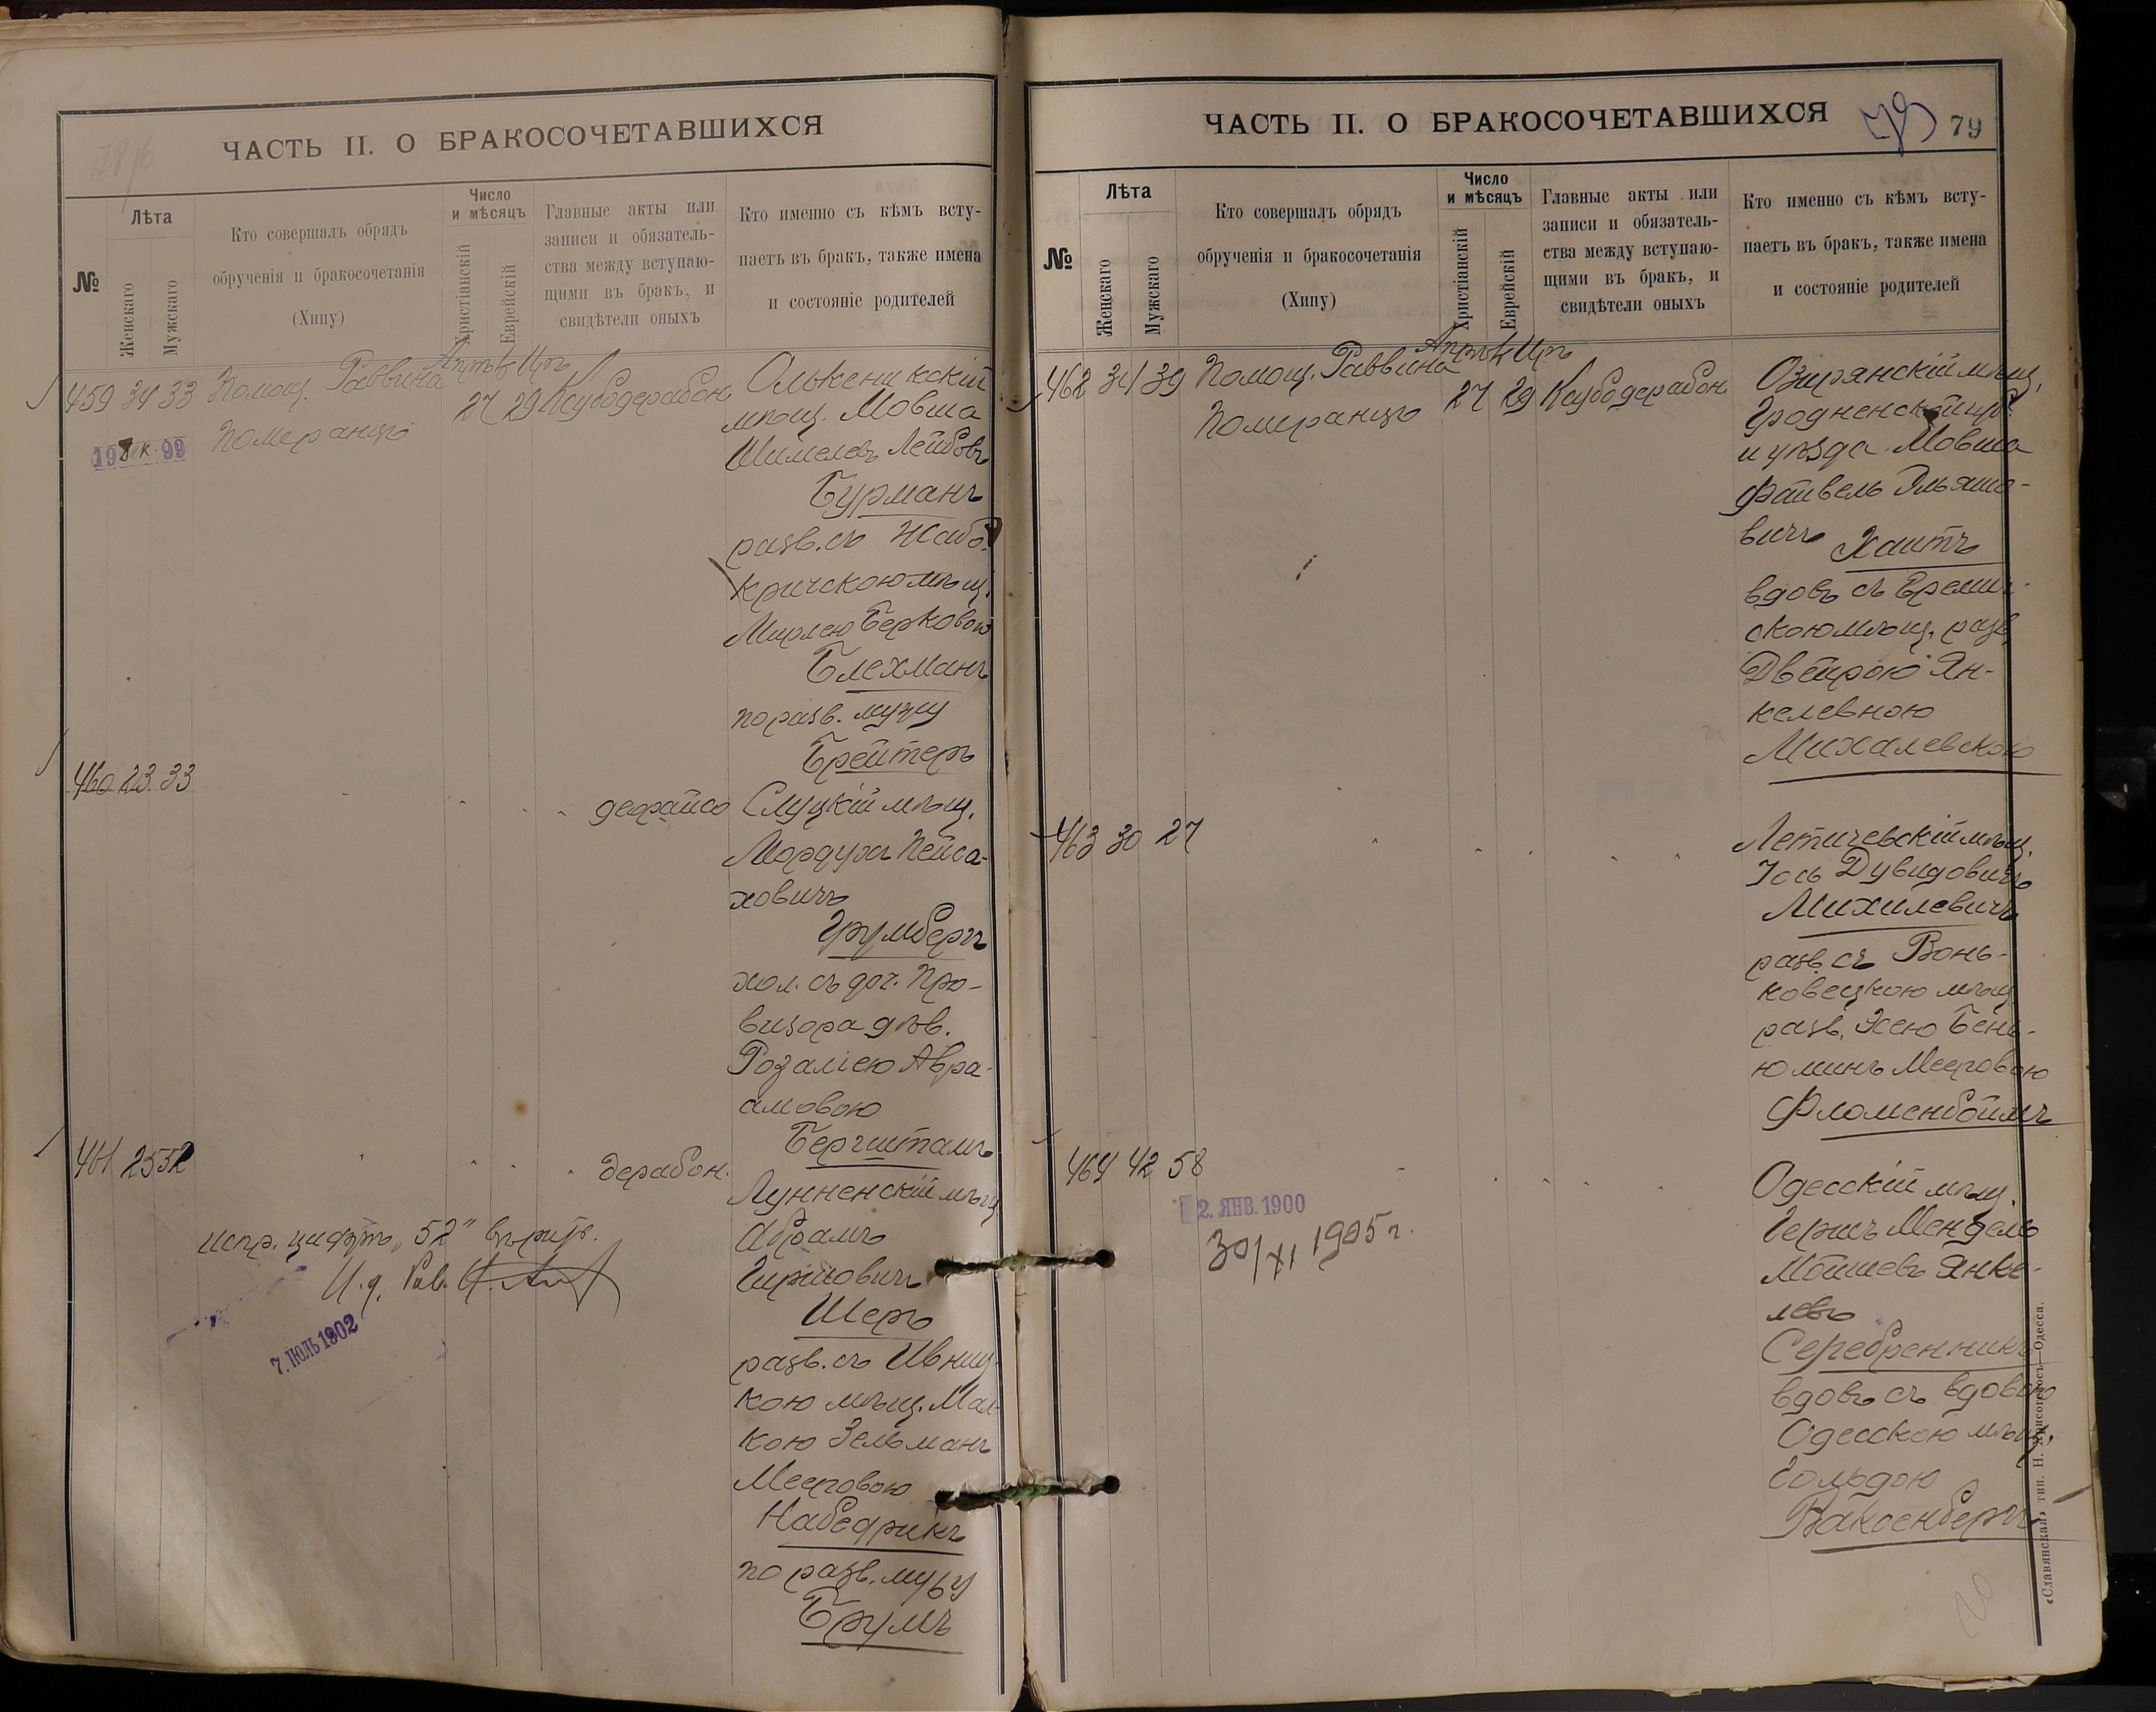 ЧАСТЬ II. О БРАКОСОЧЕТАВШИХСЯ
№
Лѣта
Женскаго
Мужскаго
Кто совершалъ обрядъ
обрученія и бракосочетанія
(Хипу)
Число
и мѣсяцъ
Христіанскій
Еврейскій
Главные акты или
записи и обязатель-
ства между вступаю-
щими въ бракъ, и
свидѣтели оныхъ
Кто именно съ кѣмъ всту-
паетъ въ бракъ, также имена
и состояніе родителей
459 34 33 Помощ. Раввина
Померанцъ
27 29 Ксубодерабон
Олькеникскій
мѣщ. Мовша
Шимелевъ Лейбовъ
Бурманъ
разв. съ Жабо-
кричскою мѣщ.
Мирлею Берковою
Блехманъ
по разв. мужу
Брейтеръ
460 23 33
дерайсо
Слуцкій мѣщ.
Мордухъ Пейса-
ховичъ
Грумбергъ
хол. съ доч. Про-
визора дѣв.
Розаліею Авра-
амовою
Бергшталъ
461 25 52
дерабон.
Лунненскій мѣщ.
Абрамъ
Гиршовичъ
Шеръ
разв. съ Ивниц-
кою мѣщ. Мал-
кою Зельманъ
Мееровою
Набедрикъ
по разв. мужу
Брумъ
испр. цифръ „52" вѣрить.
И. д. Рав.
7. ІЮЛЬ 1902
ЧАСТЬ II. О БРАКОСОЧЕТАВШИХСЯ
79 79
№
Лѣта
Женскаго
Мужскаго
Кто совершалъ обрядъ
обрученія и бракосочетанія
(Хипу)
Число
и мѣсяцъ
Христіанскій
Еврейскій
Главные акты или
записи и обязатель-
ства между вступаю-
щими въ бракъ, и
свидѣтели оныхъ
Кто именно съ кѣмъ всту-
паетъ въ бракъ, также имена
и состояніе родителей
462 34 39 Помощ. Раввина
Померанцъ
27 29 Ксубодерабон
Озирянскій мѣщ.
Гродненской губ.
и уѣзда Мовша
Файвель Эльяшо-
вичъ Хаитъ
вдовъ съ Еремич-
скою мѣщ. разв.
Двейрою Ян-
келевною
Михалевскою
463 30 27
Летичевскій мѣщ.
Іось Дувидовичъ
Михилевичъ
разв. съ Вонь-
ковецкою мѣщ.
разв. Хсею Бень-
юминъ Мееровою
Фломенбоймъ
464 42 58
2. ЯНВ. 1900
30/XI 1905 г.
Одесскій мѣщ.
Гершъ Мендель
Мойшевъ Янке-
левъ
Серебренникъ
вдовъ съ вдовою
Одесскою мѣщ.
Гольдою
Ваксенбергъ
«Славянская» тип. Н. Хрисогелосъ—Одесса.